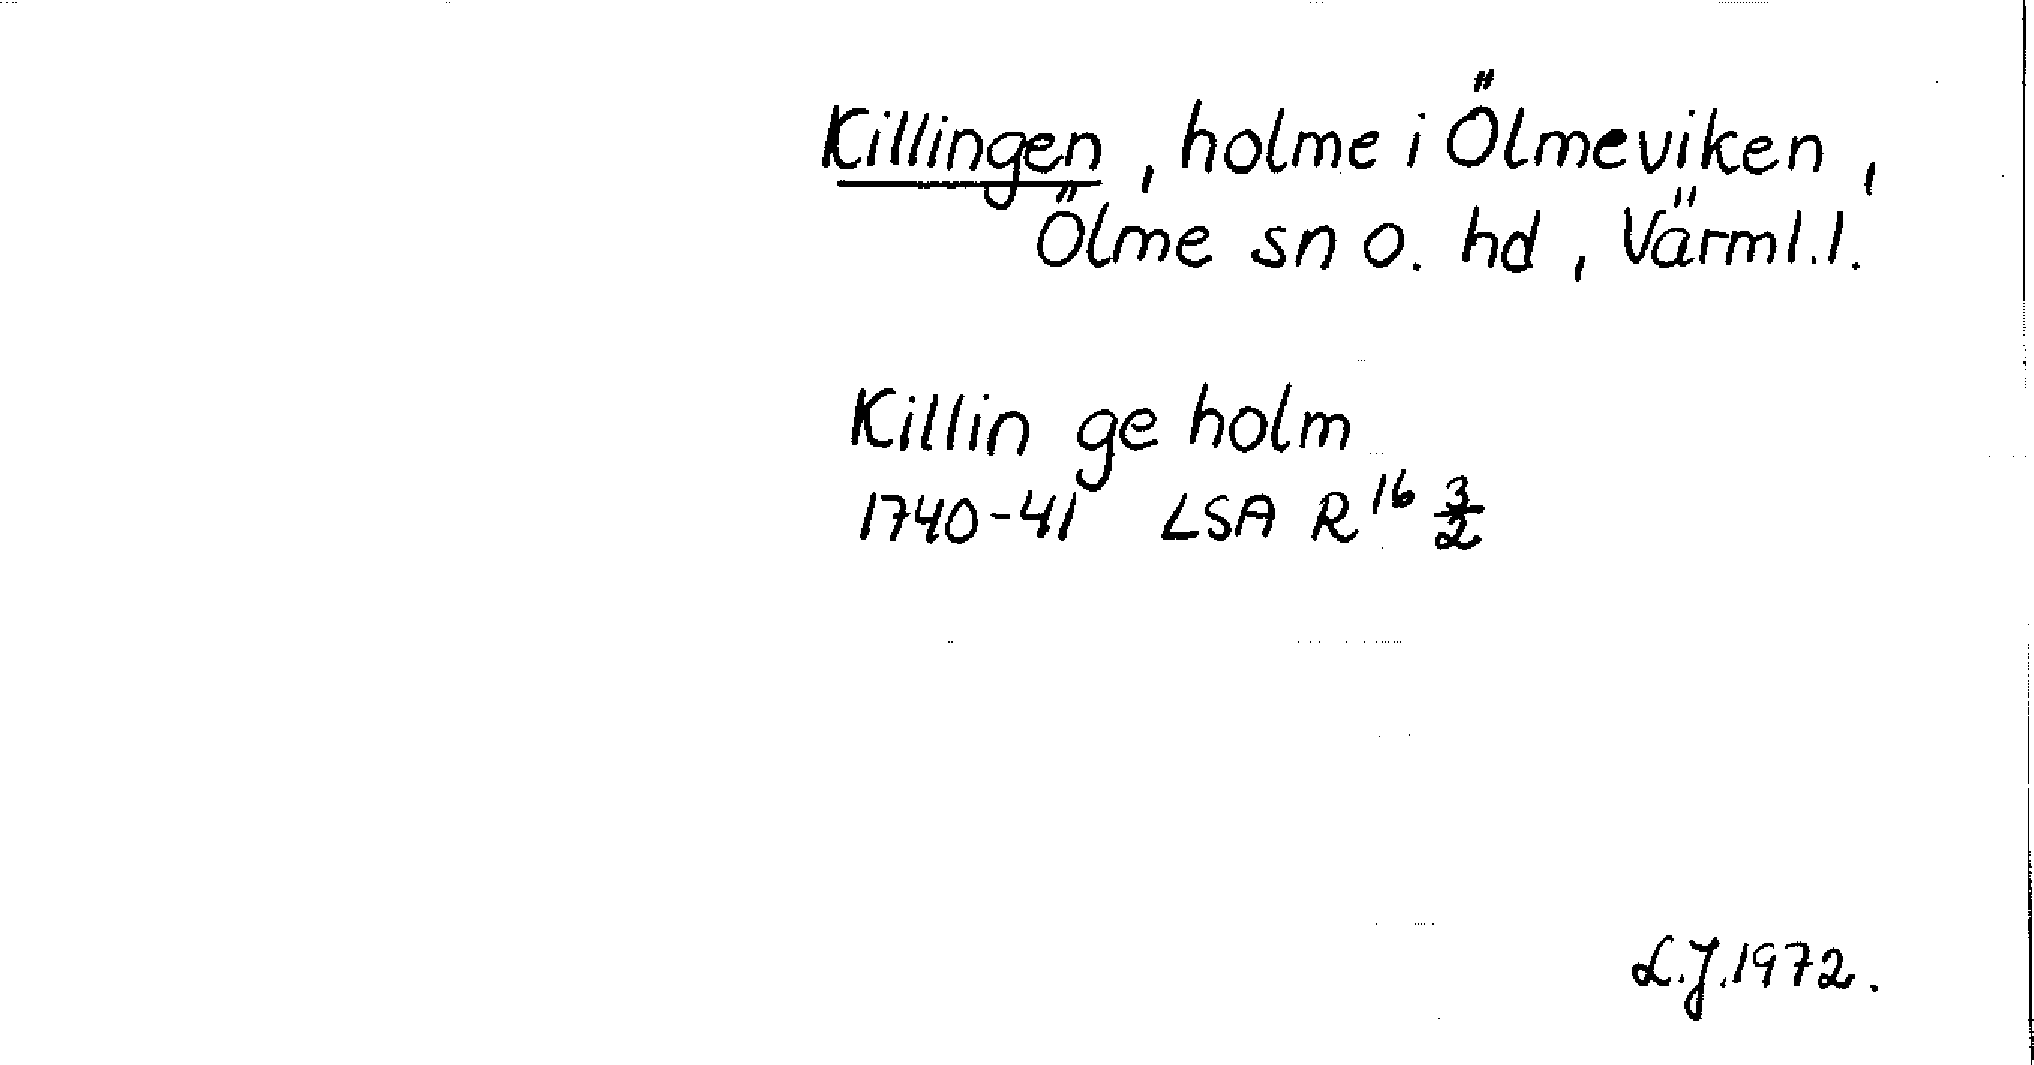 Killingen, holme i Ölmeviken,
Ölme sn o. hd, Värml.l.
Killin ge holm
1740-41 LSA R¹⁶ 3/2
L.J. 1972.